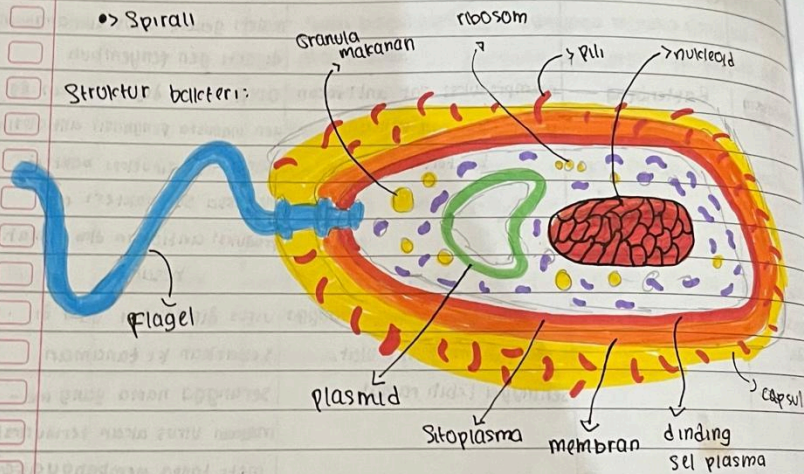 •> Spirall
Struktur bakteri:
Granula
makanan
ribosom
pili
nukleoid
Flagel
plasmid
Sitoplasma
membran
dinding
sel plasma
capsul